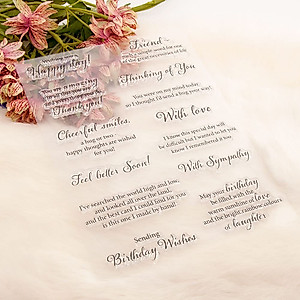 Wishing you a
Happy day!
You are amazing
Thank you!
Cheerful smiles,
a hug or two -
happy thoughts are wished
for you!
Feel better Soon!
I've searched the world high and low,
and looked all over the land,
and the best card I could find for you
is this one I made by hand!
Sending
Birthday Wishes
Friend
Thinking of You
You were on my mind today,
so I thought I'd send a hug your way!
With love
I know this special day will
be difficult but I wanted to let you
know I remembered it too.
With Sympathy
May your birthday
be filled with the
warm sunshine of love
and the bright rainbow colours
of laughter